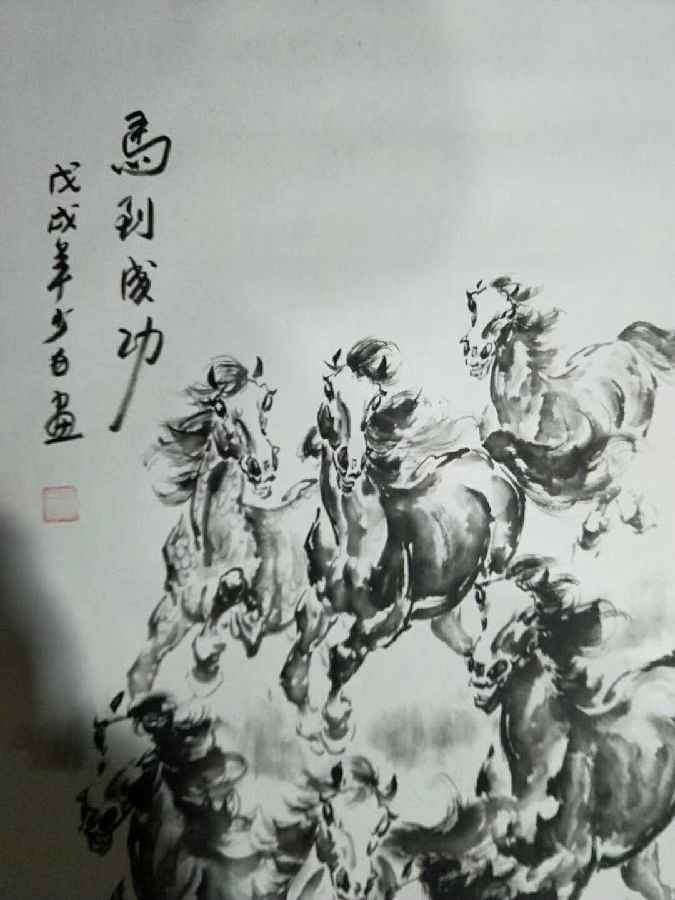 馬到成功
戊戌年少白画